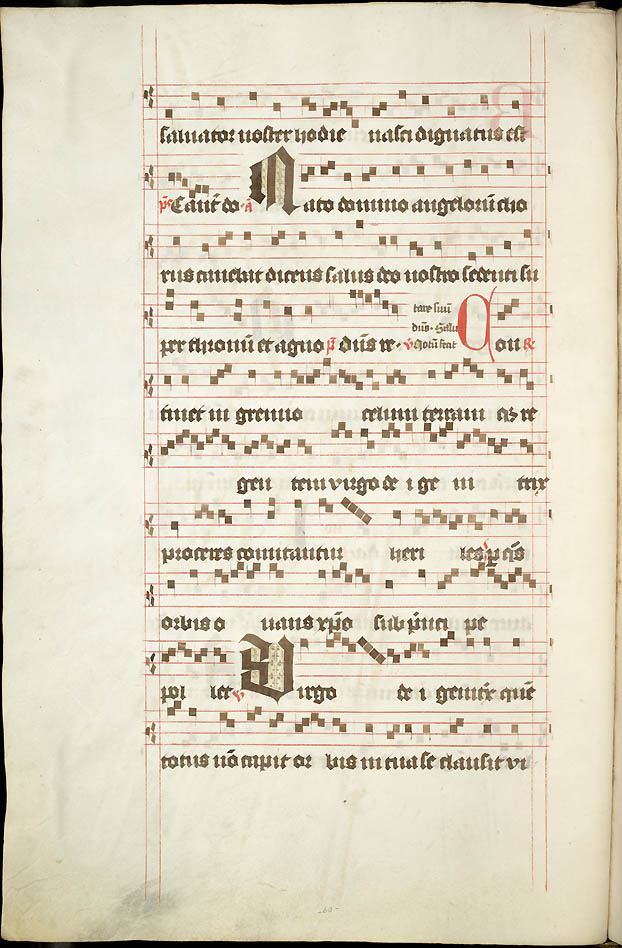 saluator noster hodie nasci dignatus est
ps Cant̄ do· a Nato domino angeloru᷒ cho
rus canebat dicens salus deo nostro sedenti su
per thronū et agno p̄ Dn̄s re· v
tare suū
dn̄s· Salu
Notū fecit
Con R̄
tinet in gremio celum terram qʒ re
gen tem virgo de i ge ni trix
proceres comitantur heri les p̄ qͦs
orbis o uans xp̄o sub p̄nci pe
pol let v Virgo de i genitrix quē
totus nō capit or bis in tua se clausit vi
-60-